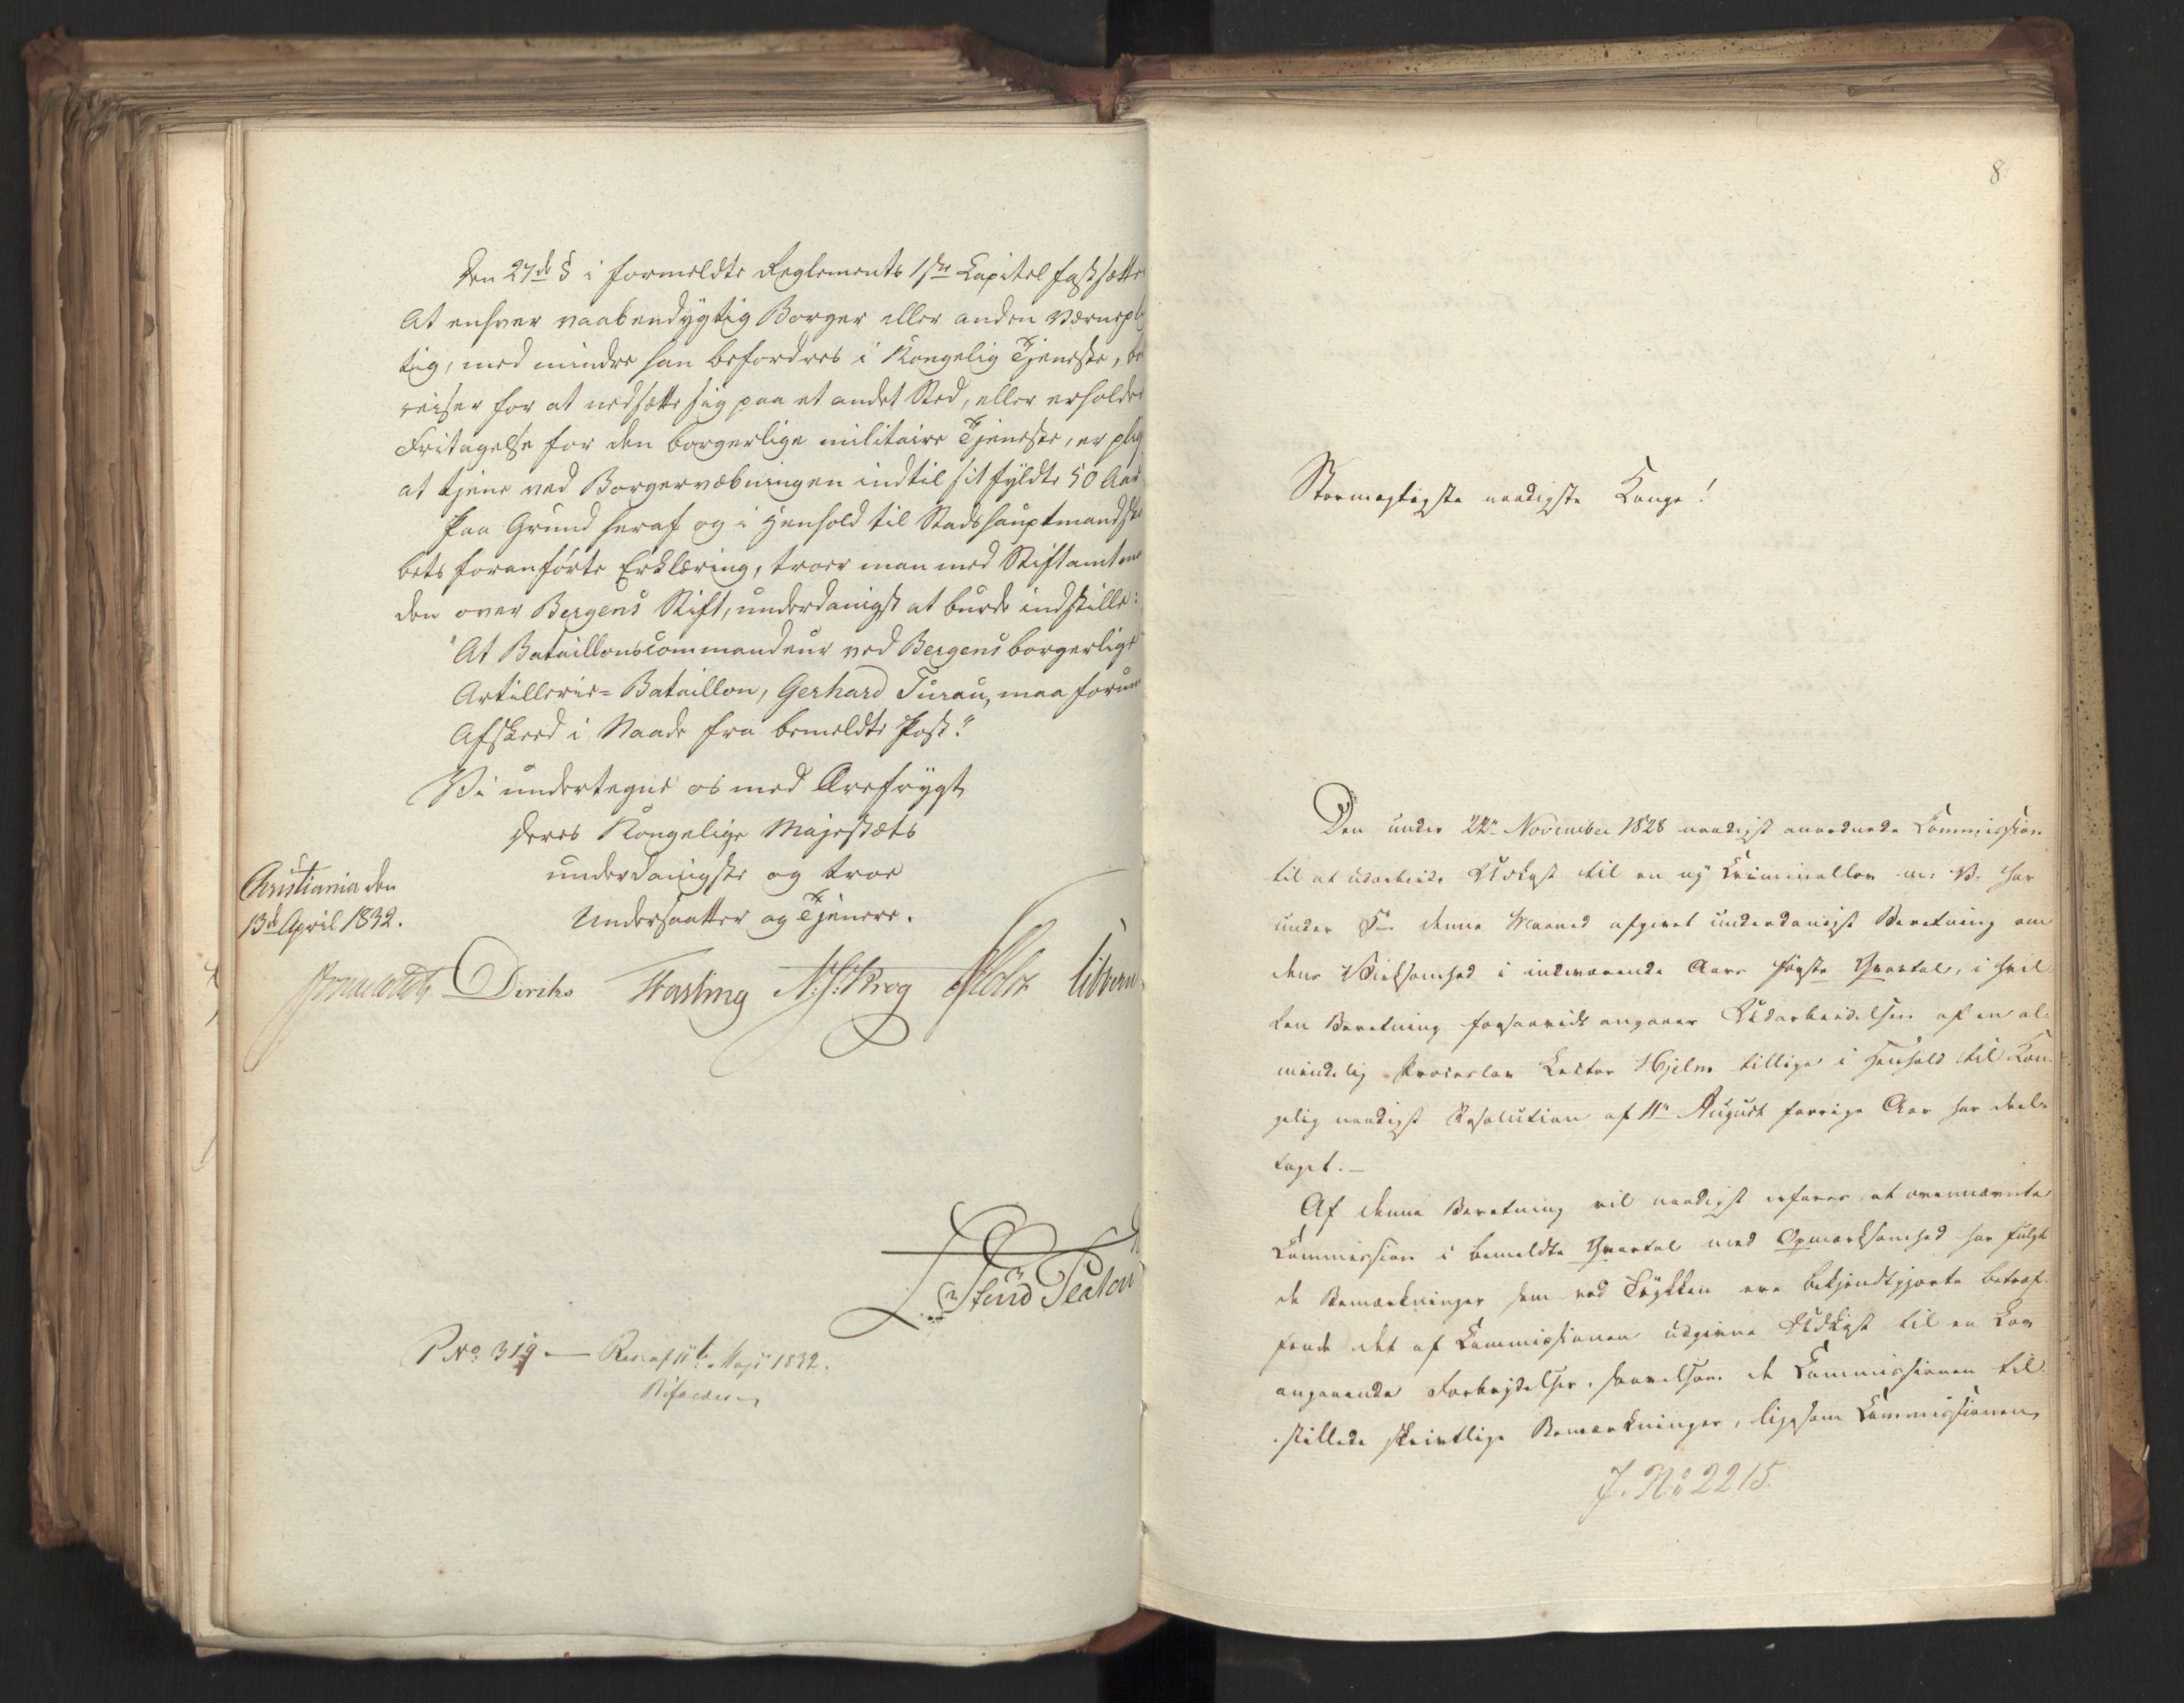 Den 27de § i formeldte Reglements 1ste Capitel fastsætte
At enhver vaabendygtig Borger eller anden Værnepl
tig, med mindre han befordres i Kongelig Tjeneste, bo
reiser for at nedsætte sig paa et andet Sted, eller erholder
Fritagelse for den borgerlige militaire Tjeneste, er plig
at tjene ved Borgervæbningen indtil sit fyldte 50 Aar
Paa Grund heraf og i Henhold til Stadshauptmandska
bets foranførte Erklæring, troer man med Stiftamtma
den over Bergens Stift, underdanigst at burde indstille:
"At Bataillonscommandeur ved Bergens borgerlige
Artillerie-Bataillon, Gerhard Turau, maa forun
Afskeed i Naade fra bemeldte Post."
Vi undertegne os med Ærefrygt
Deres Kongelige Majestæts
underdanigste og troe
Undersaatter og Tjenere.
Christiania den
13de April 1832.
Diriks Fasting N: J: Krog Holst
P No 319 — Res: af 11te Maji 1832.
Bifaldes
8
Stormægtigste naadigste Konge!
Den under 22n November 1828 naadigst anordnede Commission
til at udarbeide Udkast til en ny Criminallov m: V. har
under 5te denne Maaned afgivet underdanigst Beretning om
dens Virksomhed i indeværende Aars første Qvartal, i hvil
ken Beretning forsaavidt angaaer Udarbeidelsen af en al-
mindelig Proceslov Lector Hjelm tillige i Henhold til Kon-
gelig naadigst Resolution af 11n August forrige Aar har deel-
taget. —
Af denne Beretning vil naadigst erfares at ovennævnte
Commission i bemeldte Qvartal med Opmærksomhed har fulgt
de Bemærkninger som ved Trykken ere bekjendtgjorte betræf-
fende det af Commissionen udgivne Udkast til en Lov
angaaende Forbrydelser, saavelsom de Commissionen til-
stillede skrivtlige Bemærkninger, ligesom Commissionen
J. No 2215.